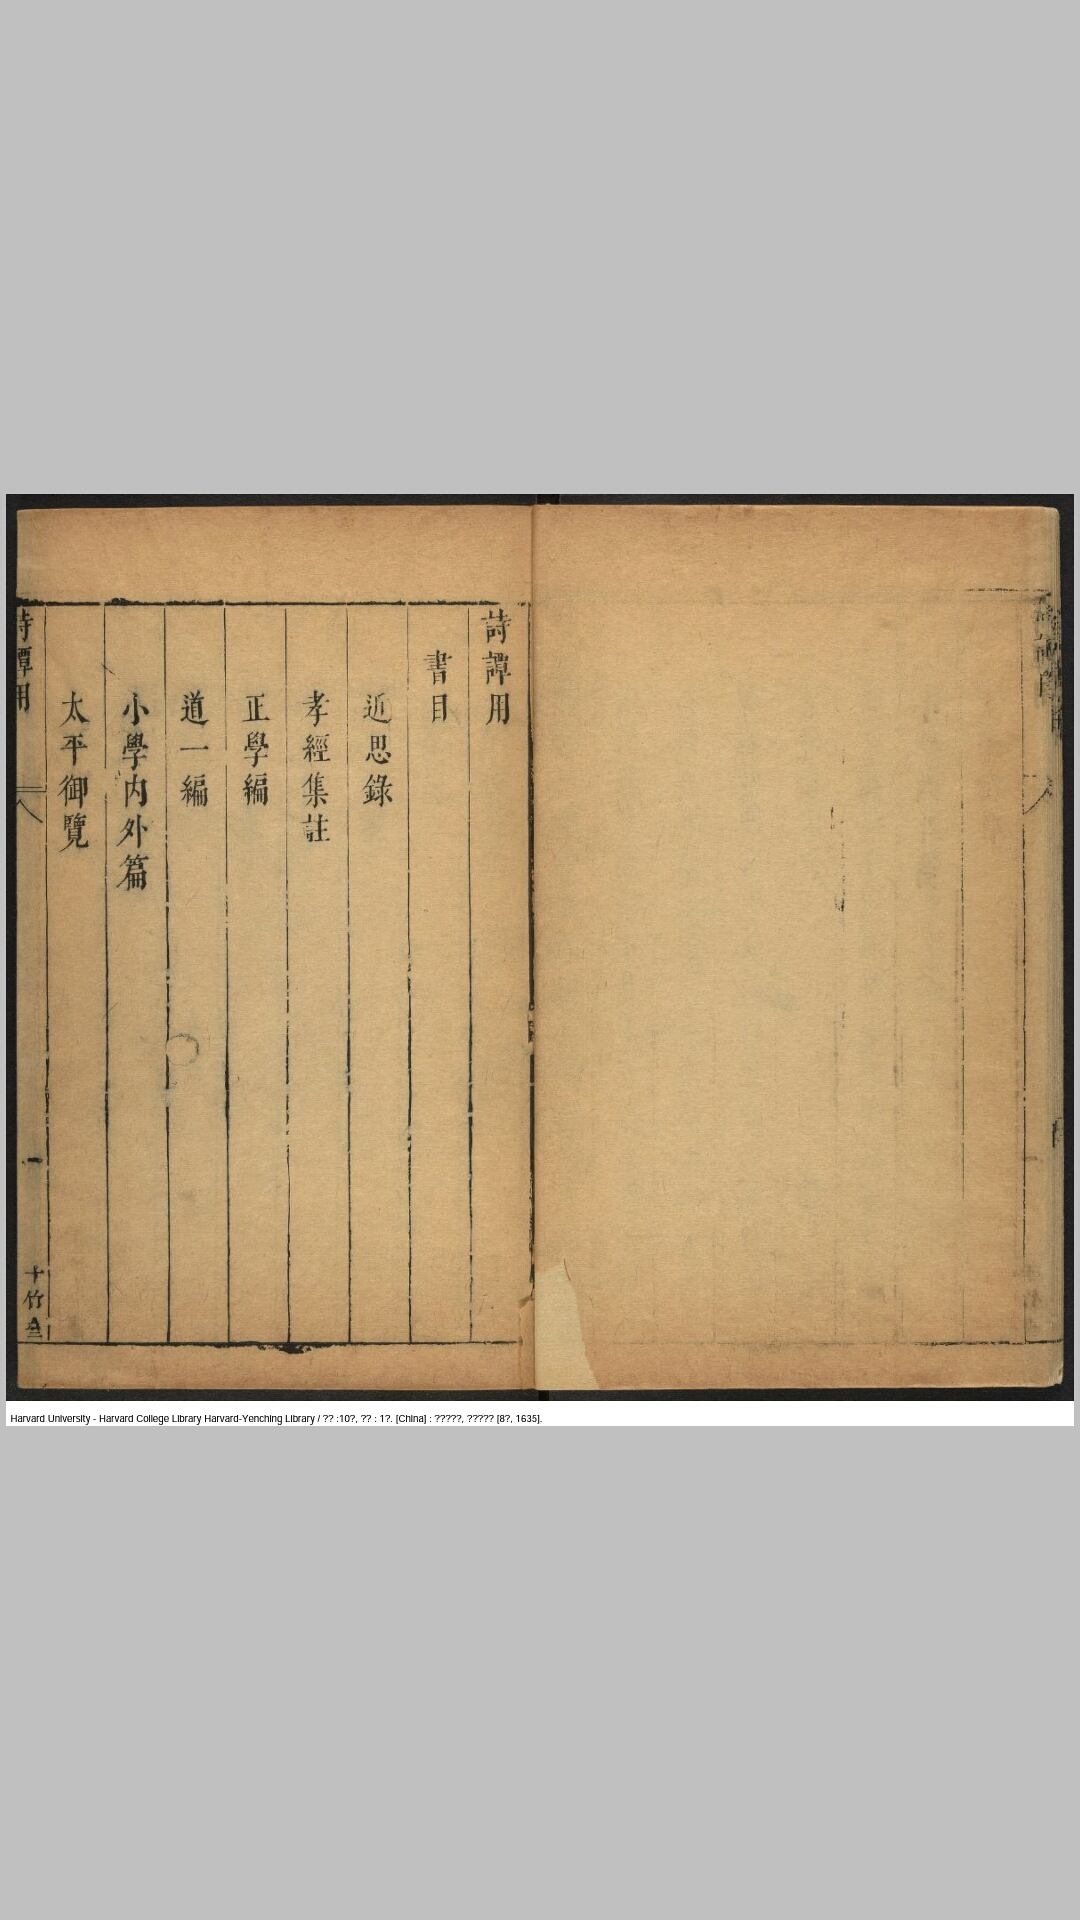 詩譚用
書目
近思錄
孝經集註
正學編
道一編
小學內外篇
太平御覽
詩譚用
一
十竹
Harvard University - Harvard College Library Harvard-Yenching Library / ?? :10?, ?? : 1?. [China] : ?????, ????? [8?, 1635].